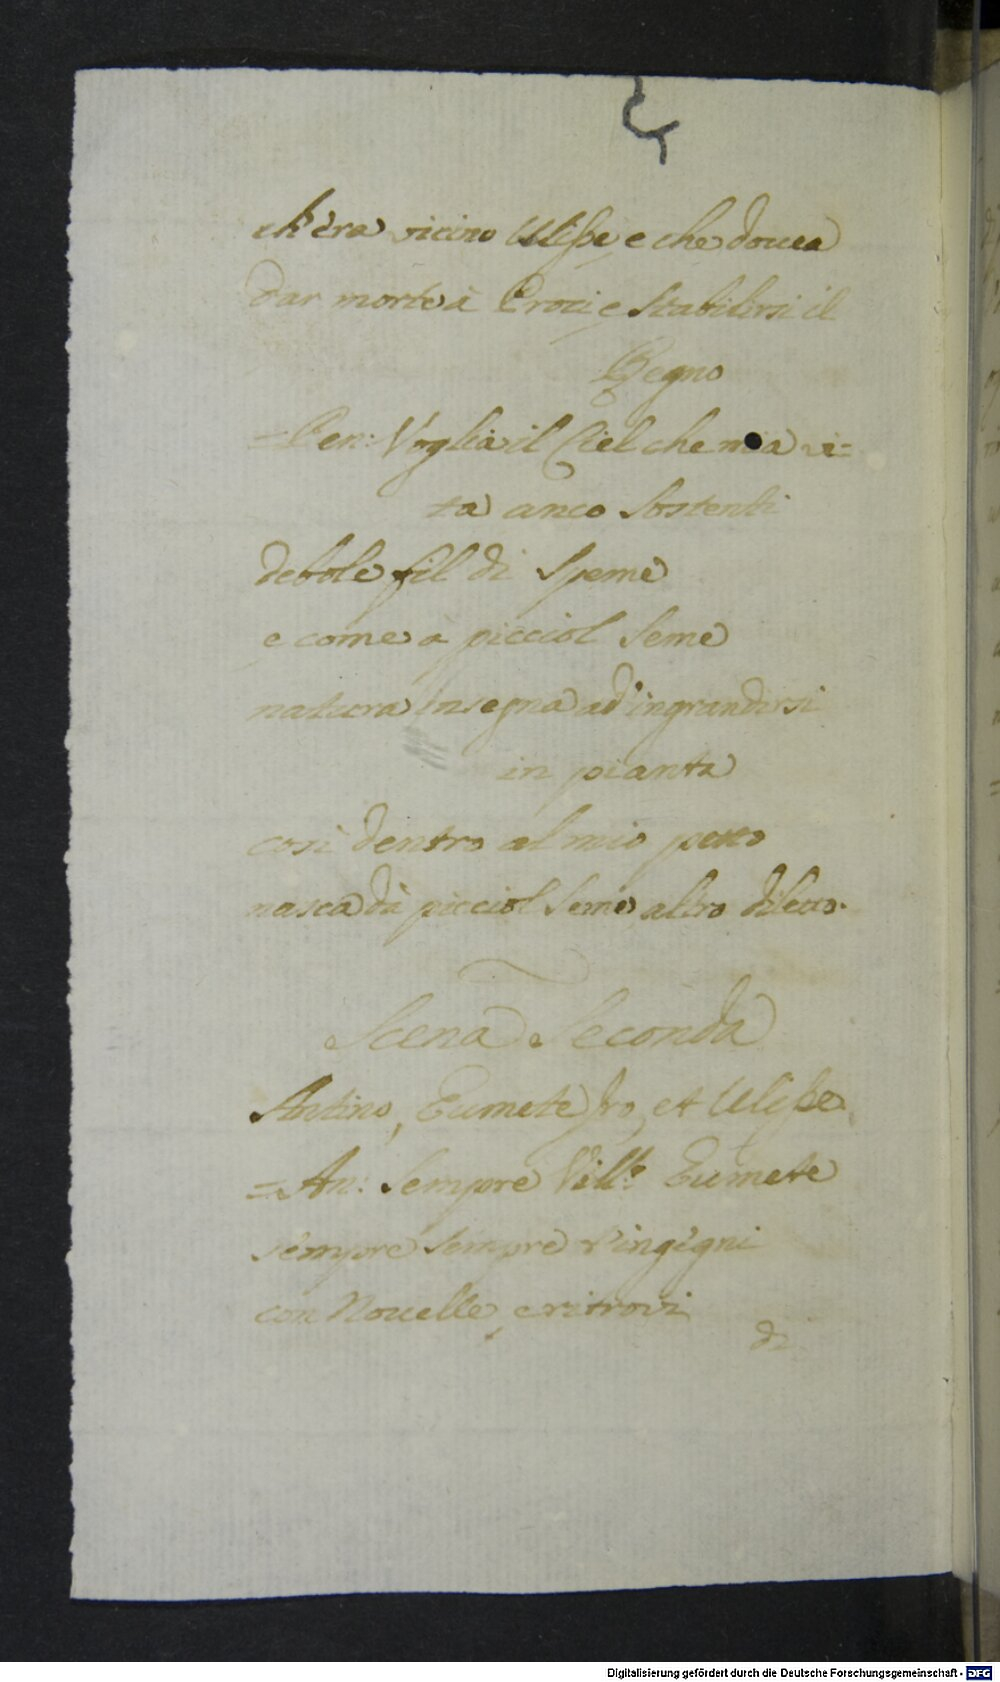 ch'era vicino Ulisse e che douea
dar morte à Proci e stabilirsi il
Regno
=Pen: Voglia il Ciel che mia vi=
ta anco sostenti
debole fil di speme
e come à picciol seme
natura insegna ad'ingrandirsi
in pianta
così dentro al mio petto
nasca dà picciol seme altro diletto.
Scena Seconda
Antino, Eumete Iro, et Ulisse
=An: Sempre Vill:º Eumete
sempre sempre t'ingegni
con Nouelle, e ritrovi
di
Digitalisierung gefördert durch die Deutsche Forschungsgemeinschaft - DFG